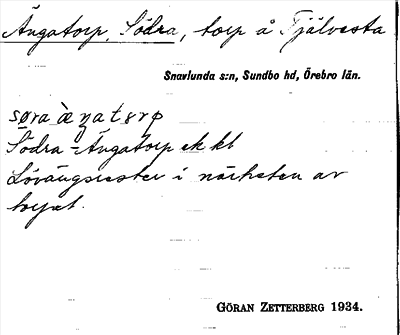 Ängatorp, Södra, torp å Tjälvesta
Snavlunda s:n, Sundbo hd, Örebro län.
Södra-Ängatorp ek kl
Lövängsrester i närheten av
torpet.
GÖRAN ZETTERBERG 1934.